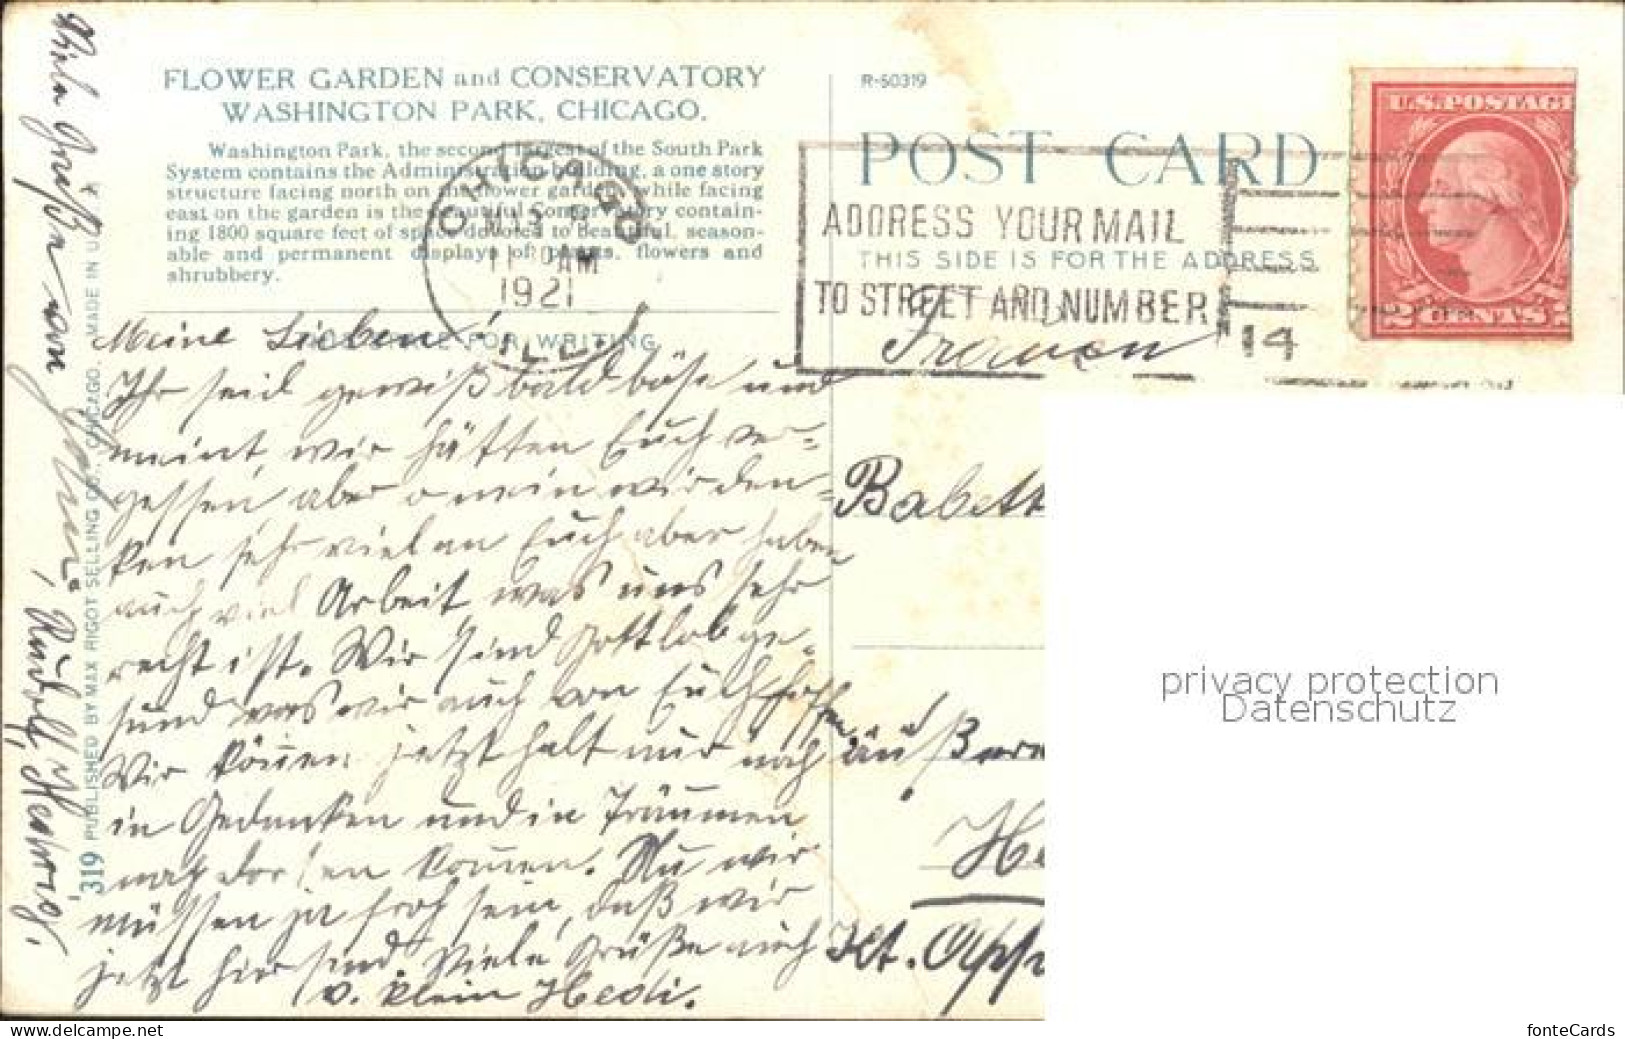 FLOWER GARDEN and CONSERVATORY
WASHINGTON PARK, CHICAGO.
Washington Park, the second largest of the South Park
System contains the Administration building, a one story
structure facing north on the flower garden, while facing
east on the garden is the beautiful Conservatory contain-
ing 1800 square feet of space devoted to beautiful, season-
able and permanent displays of plants, flowers and
shrubbery.
THIS SPACE FOR WRITING
Meine Lieben!
Ihr seid gewiß bald böse und
meint, wir hätten Euch ver=
gessen aber o nein wir den=
ken sehr viel an Euch aber haben
auch viel Arbeit was uns sehr
recht ist. Wir sind Gottlob ge-
sund was wir auch von Euch hoffen
Wir können jetzt halt nur noch
in Gedanken und in Träumen
nach dorten kommen. Nu wir
müssen ja froh sein, daß wir
jetzt hier sind. Viele Grüße auch
v. klein Hedi.
Viele Grüße von
319 PUBLISHED BY MAX RIGOT SELLING CO., CHICAGO, MADE IN U.S.A.
R-50319
POST CARD
THIS SIDE IS FOR THE ADDRESS
CHICAGO
11 30 AM
1921
ILL.
ADDRESS YOUR MAIL
TO STREET AND NUMBER
14
U.S. POSTAGE
2 CENTS 2
Babett
Kt. App
privacy protection
Datenschutz
fonteCards